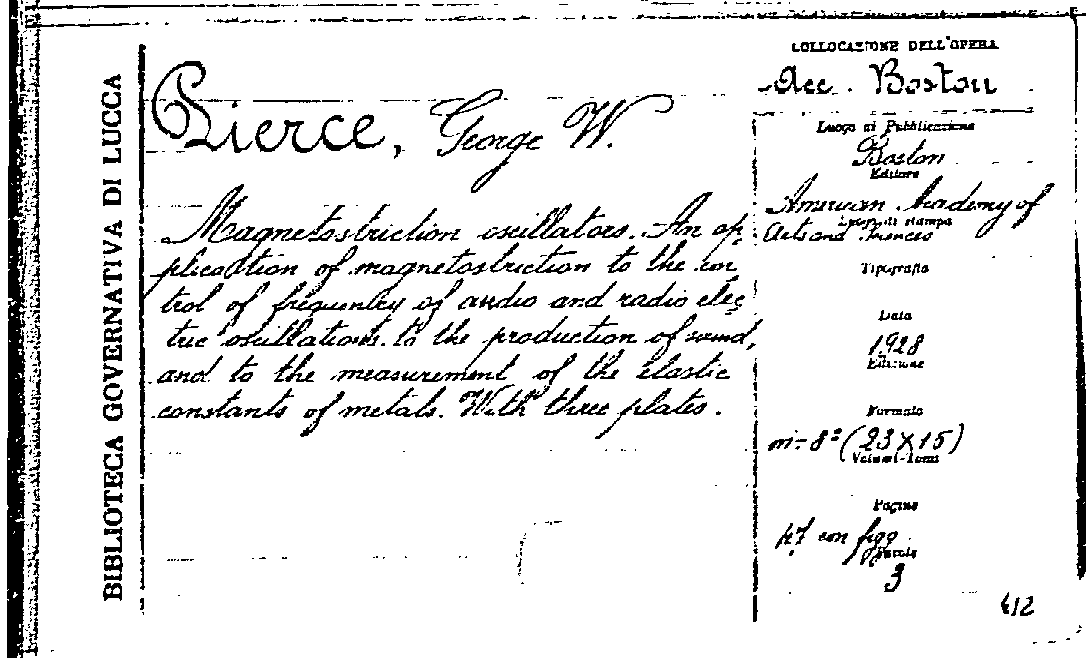 BIBLIOTECA GOVERNATIVA DI LUCCA
Pierce, George W.
Magnetostriction oscillators. An ap,
plication of magnetostriction to the con
trol of frequentry of audio and radio elec,
tric oscillations. to the production of sound,
and to the measurement of the elastic
constants of metals. With three plates.
COLLOCAZIONE DELL'OPERA
Acc. Boston
Luogo di Pubblicazione
Boston
Editore
American Academy of
Luogo di stampa
Arts and Sciences
Tipografia
Data
1928
Edizione
Formato
in-8° (23X15)
Volumi-Tomi
Pagine
47 con figg
Tavole
3
412